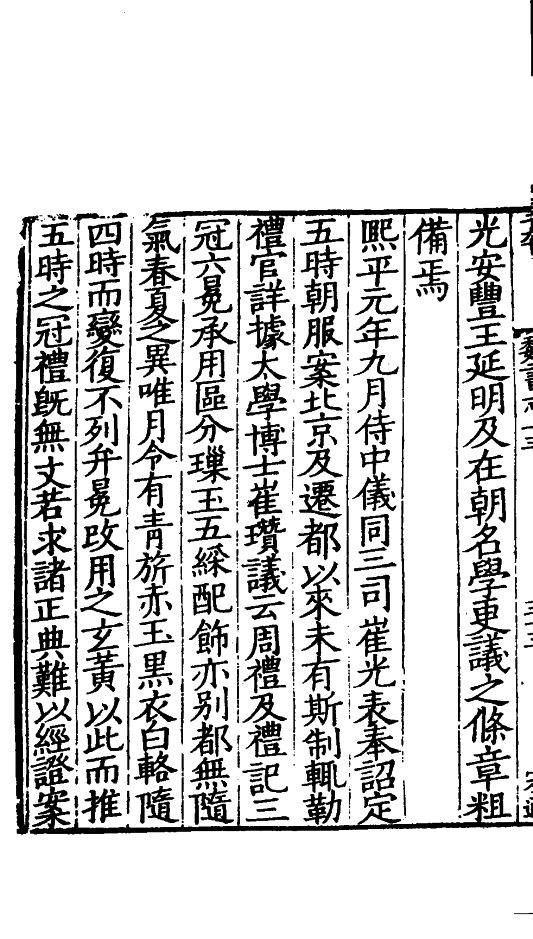 光安豐王延明及在朝名學更議之條章粗
備焉
熙平元年九月侍中儀同三司崔光表奉詔定
五時朝服案北京及遷都以來未有斯制輒勒
禮官詳據太學博士崔瓚議云周禮及禮記三
冠六冕承用區分璅玉五綵配飾亦别都無隨
氣春夏之異唯月令有青旂赤玉黑衣白輅隨
四時而變復不列弁冕改用之玄黃以此而推
五時之冠禮旣無文若求諸正典難以經證案